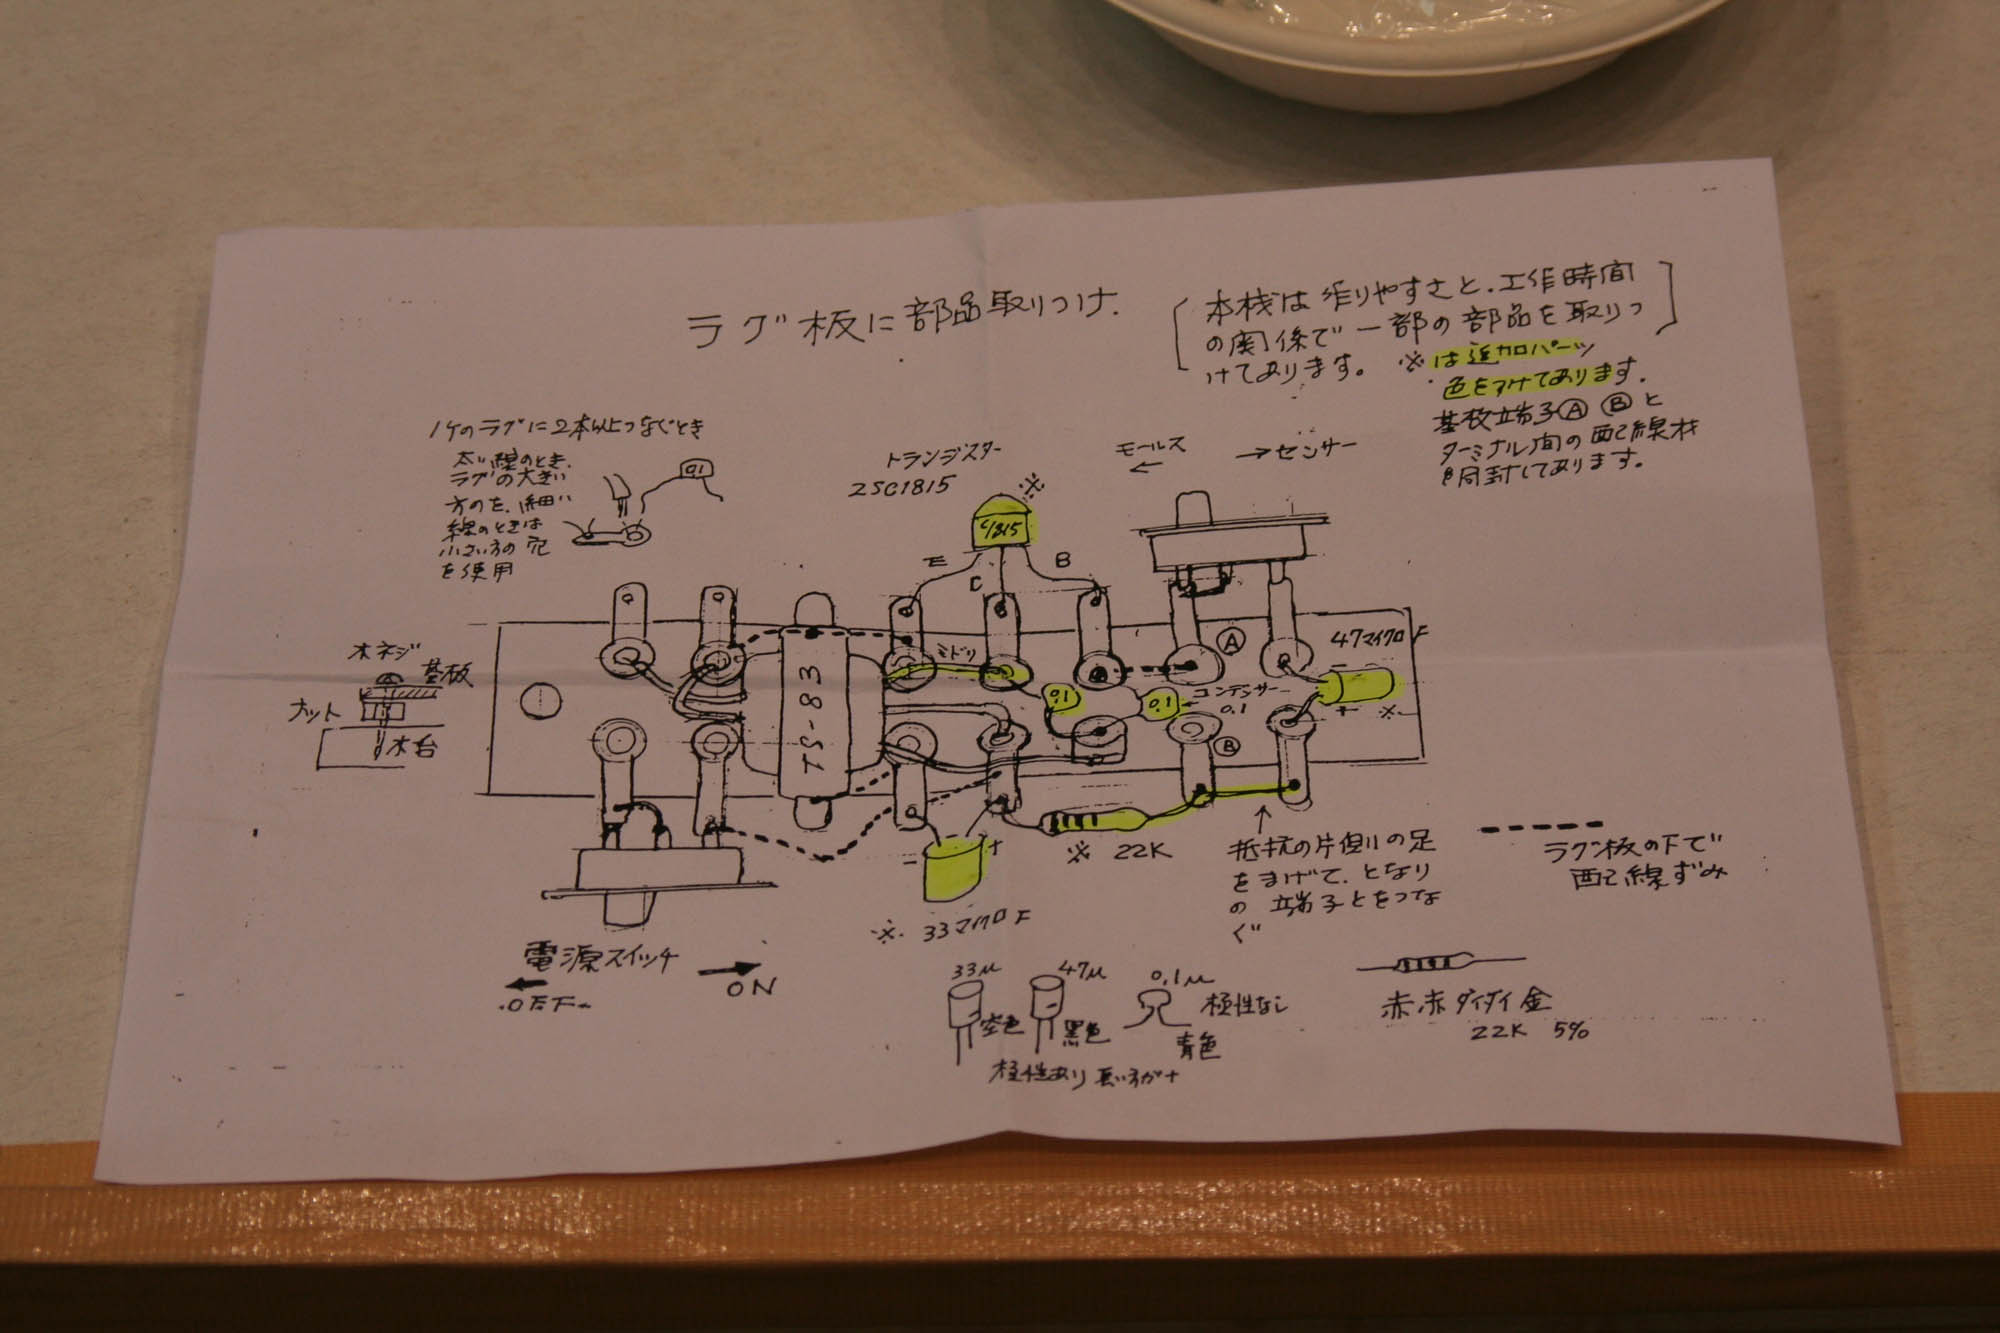 ラグ板に部品取りつけ.
本機は作りやすさと、工作時間
の関係で一部の部品を取りつ
けてあります。
※は追加パーツ
色をつけてあります.
基板端子Ⓐ Ⓑと
ターミナル間の配線材
も同封してあります。
1ケのラグに2本以上つなぐとき
太い線のとき、
ラグの大きい
方のを、細い
線のときは
小さい方の穴
を使用
0.1
トランジスター
2SC1815
※
C1815
E
C
B
モールス
←
→センサー
木ネジ
基板
ナット
木台
TS-83
ミドリ
0.1
0.1
←コンデンサー
0.1
Ⓐ
Ⓑ
47マイクロF
- + ※
- +
※ 22K
※. 33マイクロF
↑
抵抗の片側の足
をまげて、となり
の端子とをつな
ぐ
ラグ板の下で
配線ずみ
電源スイッチ
← OFF
→ ON
33μ
空色
47μ
黒色
0.1μ
極性なし
青色
極性あり 長い方が+
赤.赤ダイダイ金
22K 5%